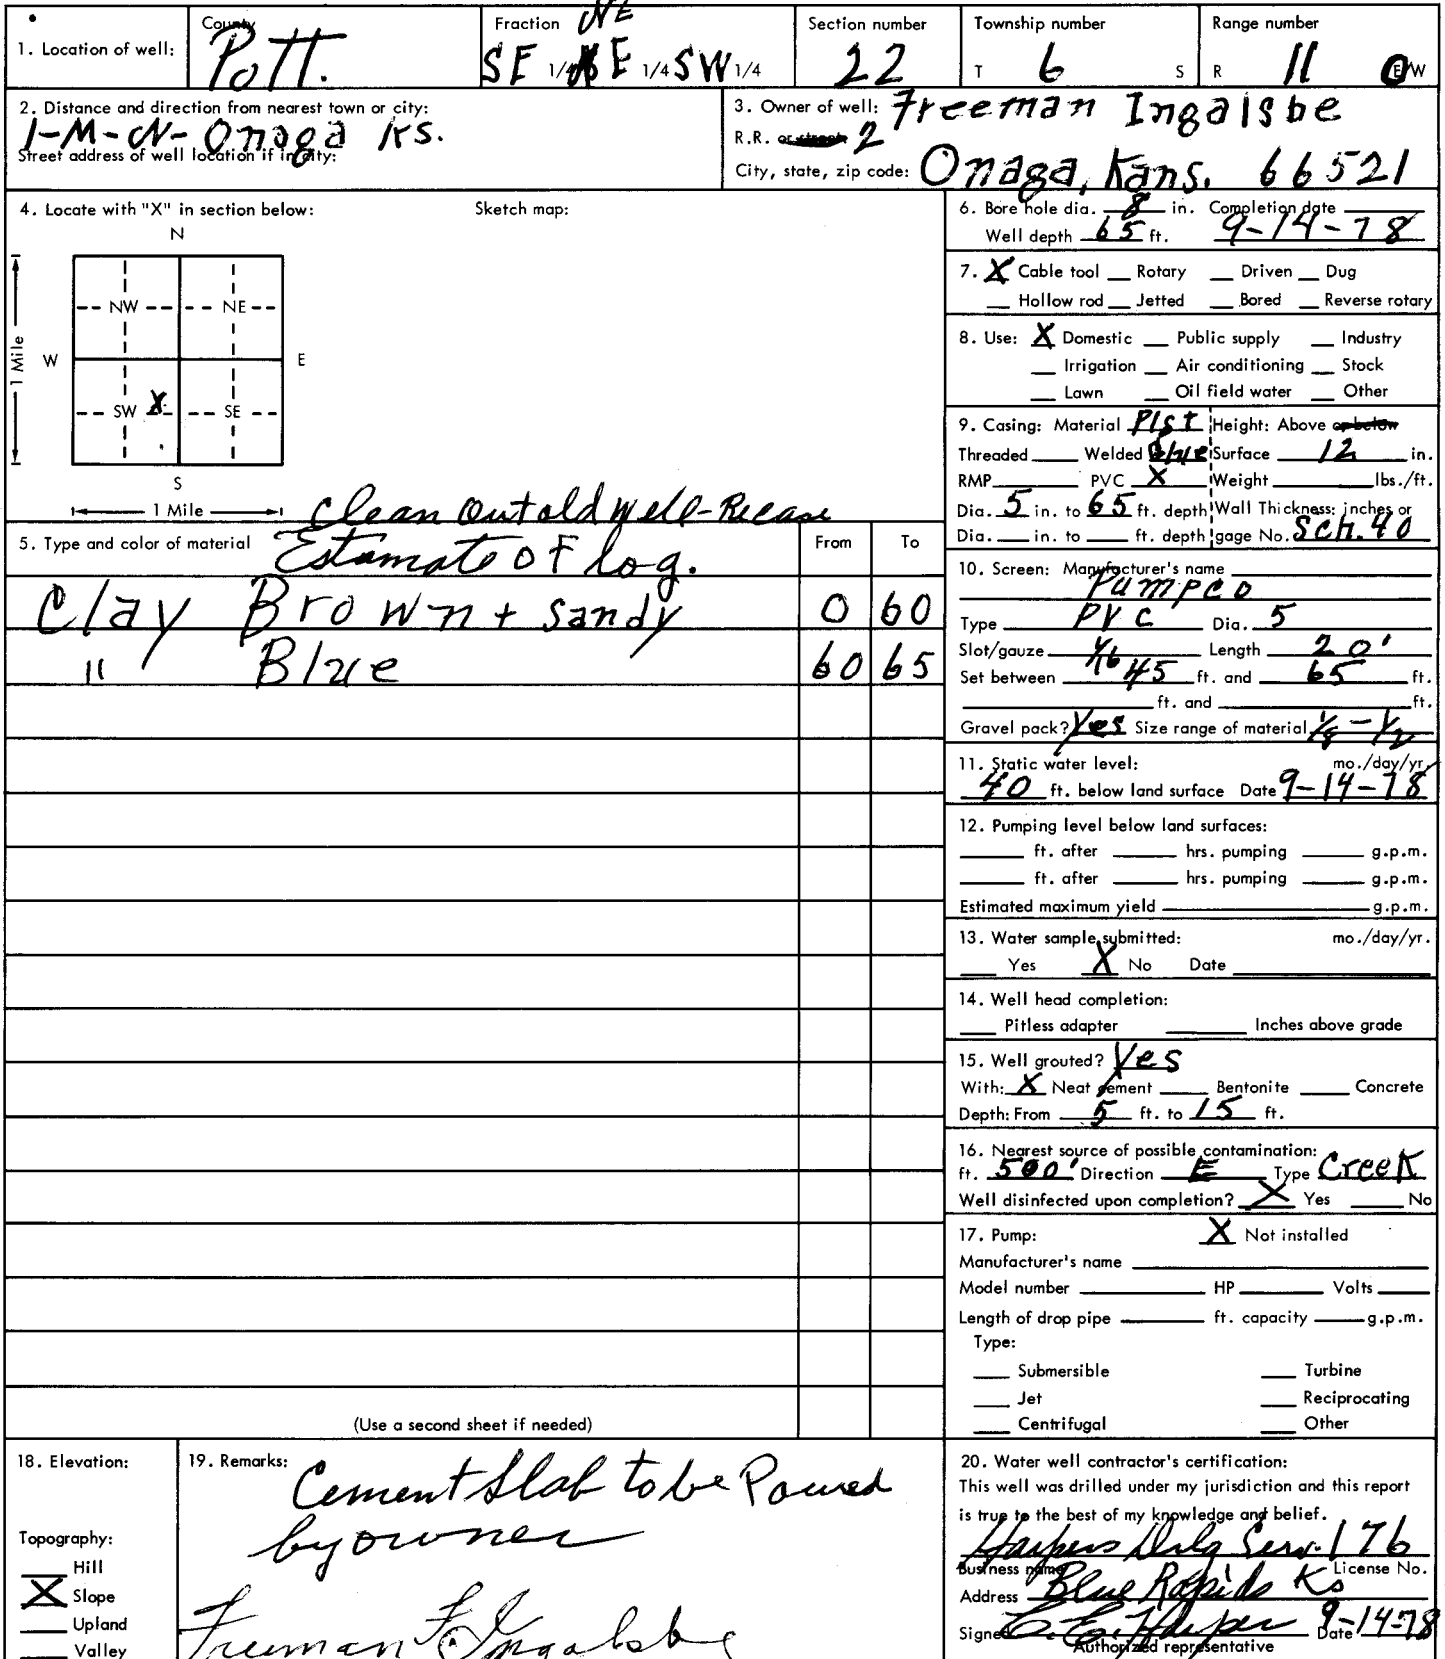 1. Location of well:
County
Pott.
Fraction NE
SE 1/4 NE 1/4 SW 1/4
Section number
22
Township number
T 6 S
Range number
R 11 E/W
2. Distance and direction from nearest town or city:
1-M-N- Onaga Ks.
Street address of well location if in city:
3. Owner of well: Freeman Ingalsbe
R.R. or street 2
City, state, zip code: Onaga, Kans. 66521
4. Locate with "X" in section below:
Sketch map:
N
NW NE
W E
1 Mile
SW X SE
S
1 Mile
Clean Out old Well-Recase
5. Type and color of material
Estamate of log.
From To
Clay Brown + sandy 0 60
" Blue 60 65
(Use a second sheet if needed)
6. Bore hole dia. 8 in. Completion date
Well depth 65 ft. 9-14-78
7. X Cable tool __ Rotary __ Driven __ Dug
__ Hollow rod __ Jetted __ Bored __ Reverse rotary
8. Use: X Domestic __ Public supply __ Industry
__ Irrigation __ Air conditioning __ Stock
__ Lawn __ Oil field water __ Other
9. Casing: Material Plst Height: Above or below
Threaded ____ Welded Glue Surface 12 in.
RMP ____ PVC X Weight ____ lbs./ft.
Dia. 5 in. to 65 ft. depth Wall Thickness: inches or
Dia. ___ in. to ___ ft. depth gage No. Sch. 40
10. Screen: Manufacturer's name
Pumpco
Type PVC Dia. 5
Slot/gauze 1/16 Length 20'
Set between 45 ft. and 65 ft.
____ ft. and ____ ft.
Gravel pack? Yes Size range of material 1/8 - 1/2
11. Static water level: mo./day/yr.
40 ft. below land surface Date 9-14-78
12. Pumping level below land surfaces:
____ ft. after ____ hrs. pumping ____ g.p.m.
____ ft. after ____ hrs. pumping ____ g.p.m.
Estimated maximum yield ____ g.p.m.
13. Water sample submitted: mo./day/yr.
___ Yes X No Date ____
14. Well head completion:
___ Pitless adapter ____ Inches above grade
15. Well grouted? Yes
With: X Neat cement ___ Bentonite ___ Concrete
Depth: From 5 ft. to 15 ft.
16. Nearest source of possible contamination:
ft. 500' Direction E Type Creek
Well disinfected upon completion? X Yes ___ No
17. Pump: X Not installed
Manufacturer's name ____
Model number ____ HP ____ Volts ____
Length of drop pipe ____ ft. capacity ____ g.p.m.
Type:
___ Submersible ___ Turbine
___ Jet ___ Reciprocating
___ Centrifugal ___ Other
18. Elevation:
Topography:
___ Hill
X Slope
___ Upland
___ Valley
19. Remarks:
Cement Slab to be Poured
by owner
Freeman F. Ingalsbe
20. Water well contractor's certification:
This well was drilled under my jurisdiction and this report
is true to the best of my knowledge and belief.
Harpers Drlg Serv. 176
Business name License No.
Address Blue Rapids Ks
Signed C. E. Harper Date 9-14-78
Authorized representative